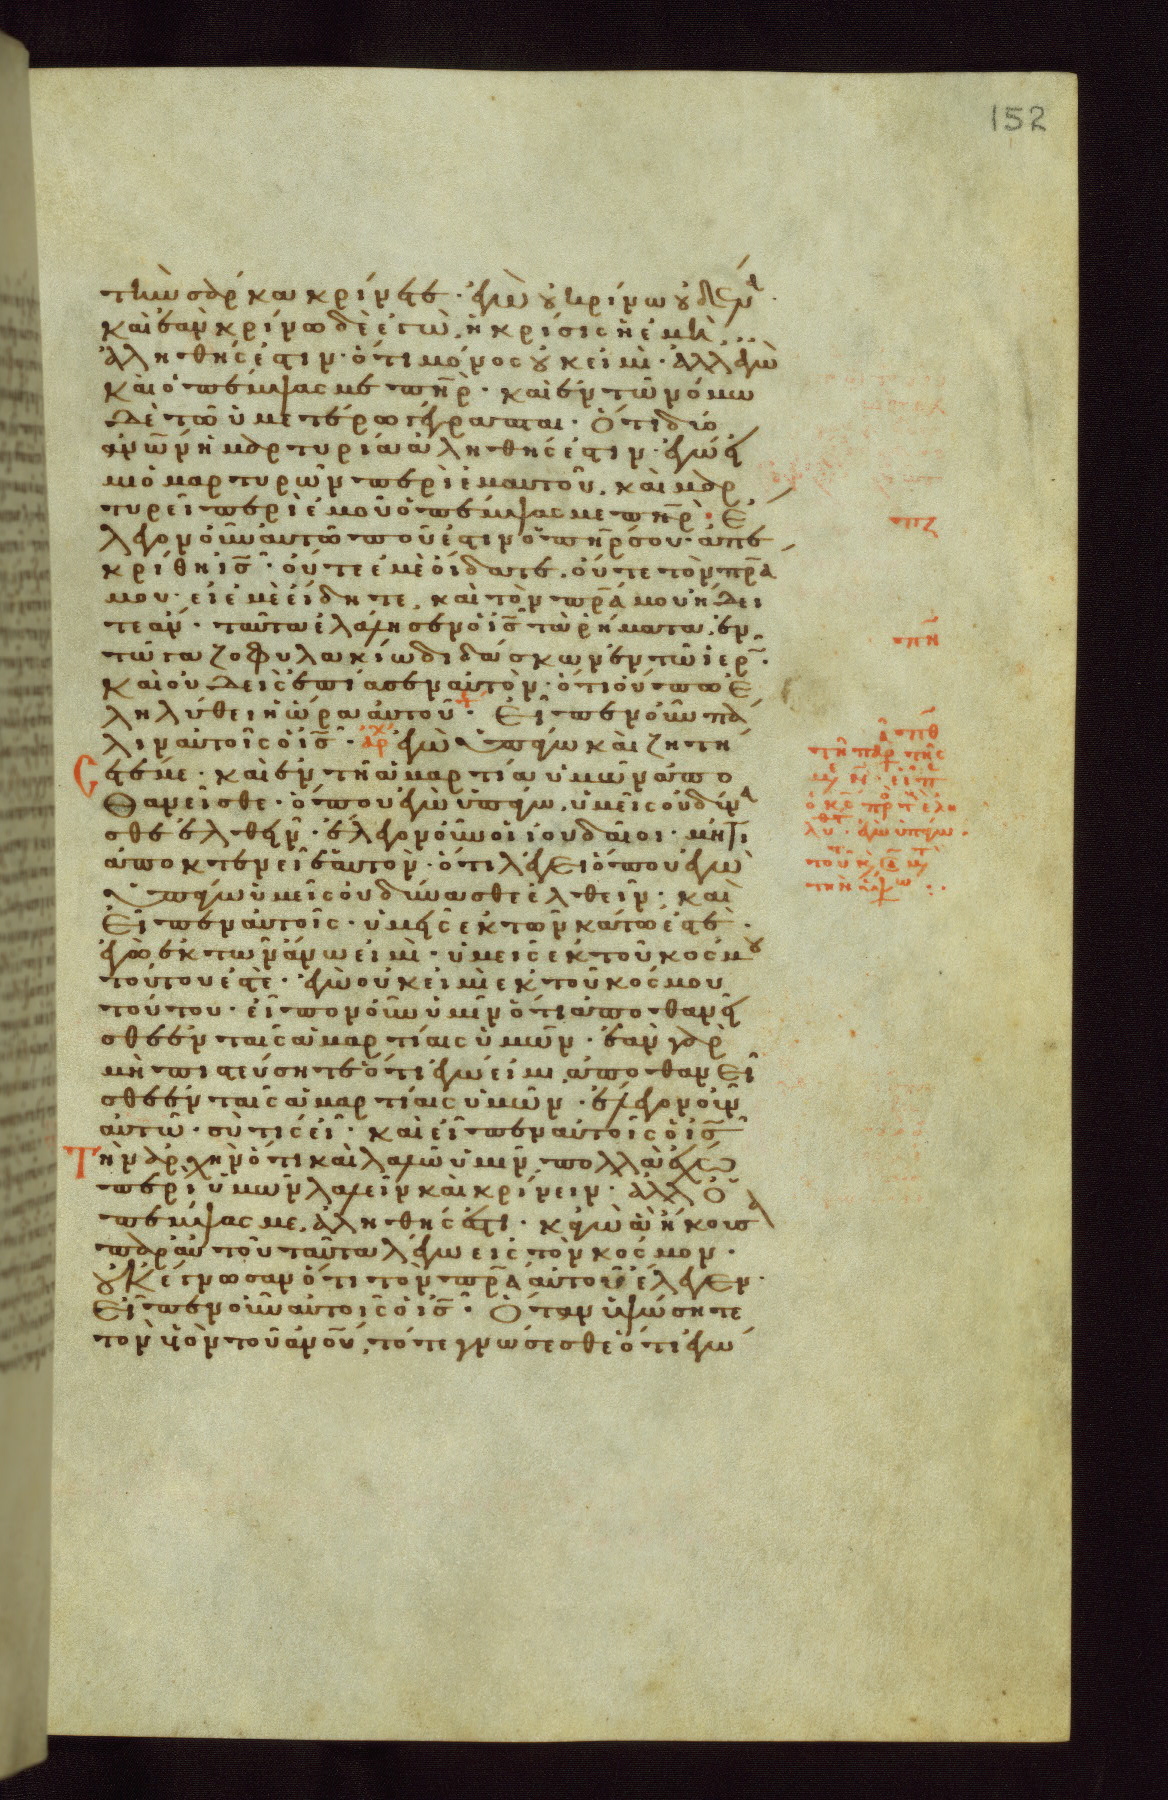 152
τὴν σάρκα κρίνετε· ἐγὼ οὐ κρίνω οὐδένα·
καὶ ἐὰν κρίνω δὲ ἐγὼ, ἡ κρίσις ἡ ἐμὴ
ἀληθής ἐστιν· ὅτι μόνος οὐκ εἰμὶ· ἀλλ' ἐγὼ
καὶ ὁ πέμψας με πηρ· καὶ ἐν τῶ νόμω
δὲ τῶ ὑμετέρω γέγραπται· ὅτι δύο
ανων ἡ μαρτυρία ἀληθής ἐστιν· ἐγώ εἰ
μι ὁ μαρτυρῶν περὶ ἐμαυτοῦ, καὶ μαρ
τυρεῖ περὶ ἐμοῦ ὁ πέμψας με πηρ· Ἔ
λεγον οὖν αὐτῶ ποῦ ἐστιν ὁ πηρ σου· ἀπε
κρίθη ις· οὔτε ἐμὲ οἴδατε, οὔτε τὸν πρα
μου· εἰ ἐμὲ εἴδητε, καὶ τὸν πρα μου ἤδει
τε ἄν· ταῦτα ἐλάλησεν ὁ ις τὰ ῥήματα, ἐν
τῶ γαζοφυλακίω διδάσκων ἐν τῶ ἱερῶ·
καὶ οὐδεὶς ἐπίασεν αὐτὸν· ὅτι οὔπω ἐ
ληλύθει ἡ ὥρα αὐτοῦ· Εἶπεν οὖν πά
λιν αὐτοῖς ὁ ις· ἀρχ ἐγὼ ὑπάγω καὶ ζητή
σετέ με· καὶ ἐν τῆ ἁμαρτία ὑμῶν ἀπο
θανεῖσθε· ὅπου ἐγὼ ὑπάγω, ὑμεῖς οὐ δύνα
σθε ἐλθεῖν· ἔλεγον οὖν οἱ ἰουδαῖοι· μήτι
ἀποκτενεῖ ἑαυτὸν· ὅτι λέγει ὅπου ἐγὼ
ὑπάγω ὑμεῖς οὐ δύνασθε ἐλθεῖν; καὶ
Εἶπεν αὐτοῖς· ὑμεῖς ἐκ τῶν κάτω ἐστὲ·
ἐγὼ ἐκ τῶν ἄνω εἰμὶ· ὑμεῖς ἐκ τοῦ κόσμου
τούτου ἐστὲ· ἐγὼ οὐκ εἰμὶ ἐκ τοῦ κόσμου
τούτου· εἶπον οὖν ὑμῖν ὅτι ἀποθανεῖ
σθε ἐν ταῖς ἁμαρτίαις ὑμῶν· ἐὰν γὰρ
μὴ πιστεύσητε ὅτι ἐγώ εἰμι, ἀποθανεῖ
σθε ἐν ταῖς ἁμαρτίαις ὑμῶν· ἔλεγον οὖν
αὐτῶ· σὺ τίς εἶ· καὶ εἶπεν αὐτοῖς ὁ ις
Τὴν ἀρχὴν ὅτι καὶ λαλῶ ὑμῖν, πολλὰ ἔχω
περὶ ὑμῶν λαλεῖν καὶ κρίνειν· ἀλλ' ὁ
πέμψας με, ἀληθής ἐστι· κἀγὼ ἃ ἤκουσα
παρ' αὐτοῦ ταῦτα λέγω εἰς τὸν κόσμον·
οὐκ ἔγνωσαν ὅτι τὸν πρα αὐτοῖς ἔλεγεν·
Εἶπεν οὖν αὐτοῖς ὁ ις· Ὅταν ὑψώσητε
τὸν υἱὸν τοῦ ανου, τότε γνώσεσθε ὅτι ἐγώ
πζ
πη
πθ
τῆ παρ τῆς
ἐγὼ ὑπάγω·